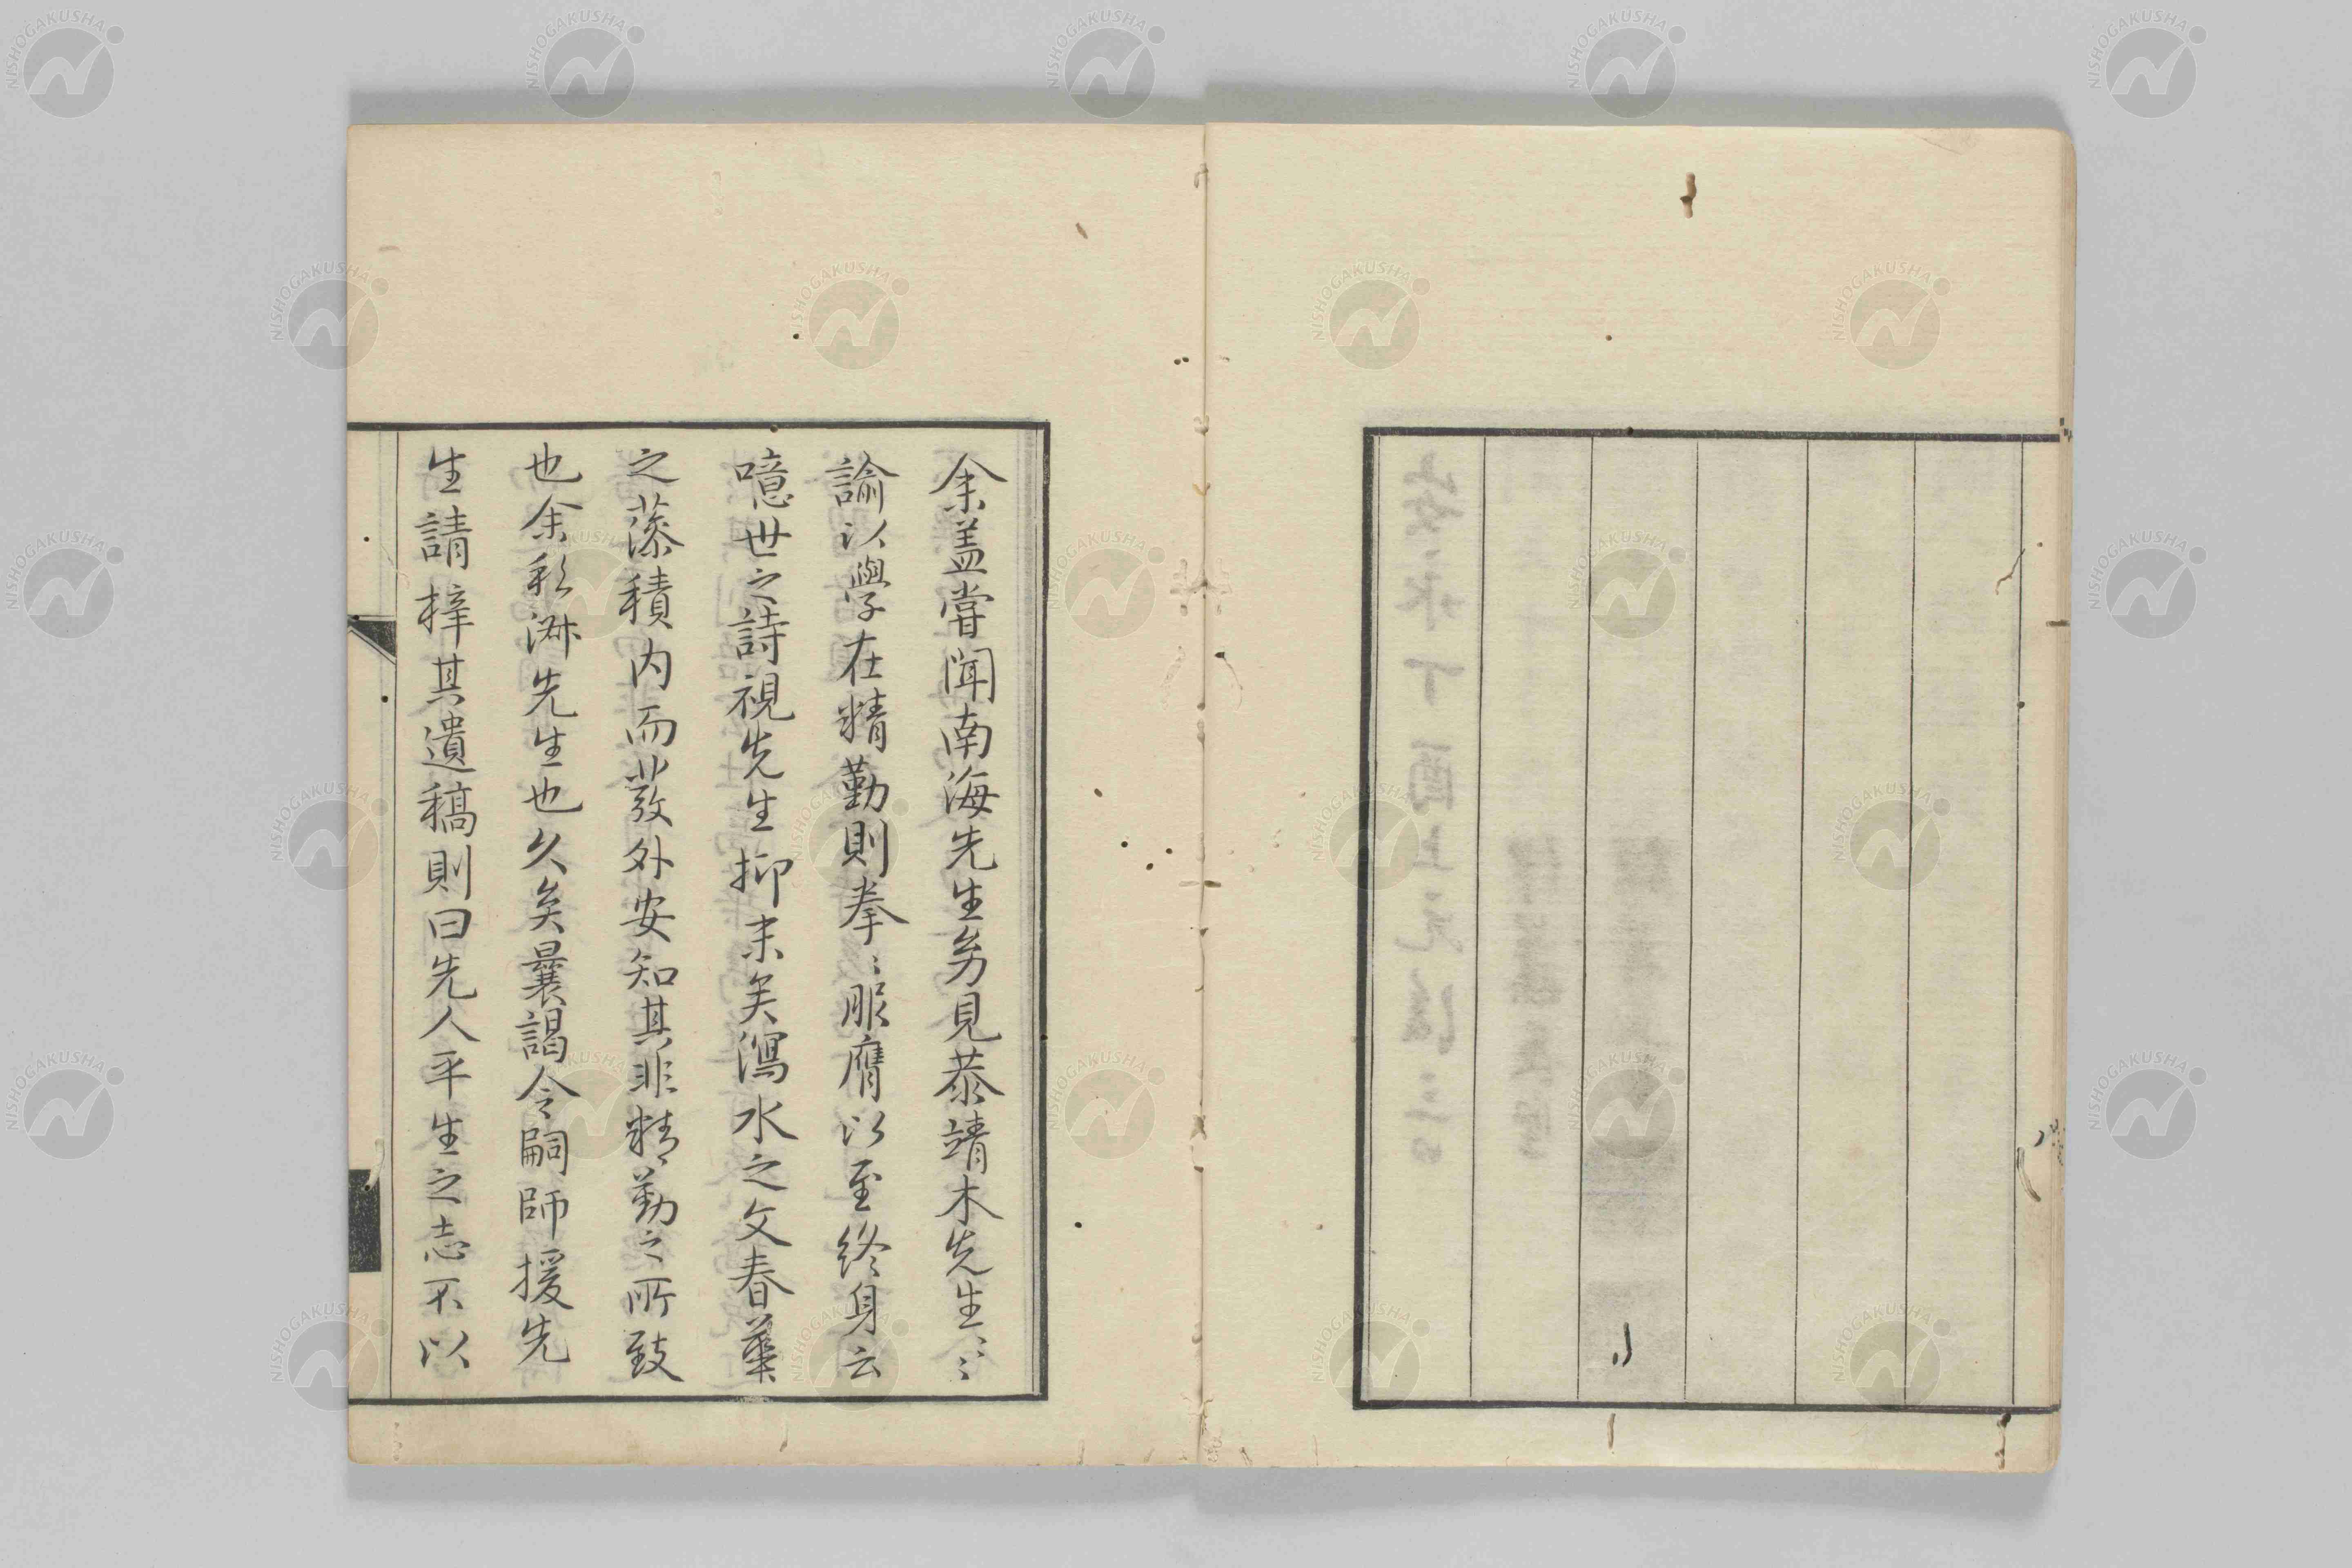 余盖嘗聞南海先生努見恭靖木先生〻〻
諭以學在精勤則拳〻服膺以至終身云
噫世之詩視先生抑末矣瀉水之文春華
之藻積内而發外安知其非精勤之所致
也余私淑先生也久矣曩謁令嗣師援先
生請梓其遺稿則曰先人平生之志不以